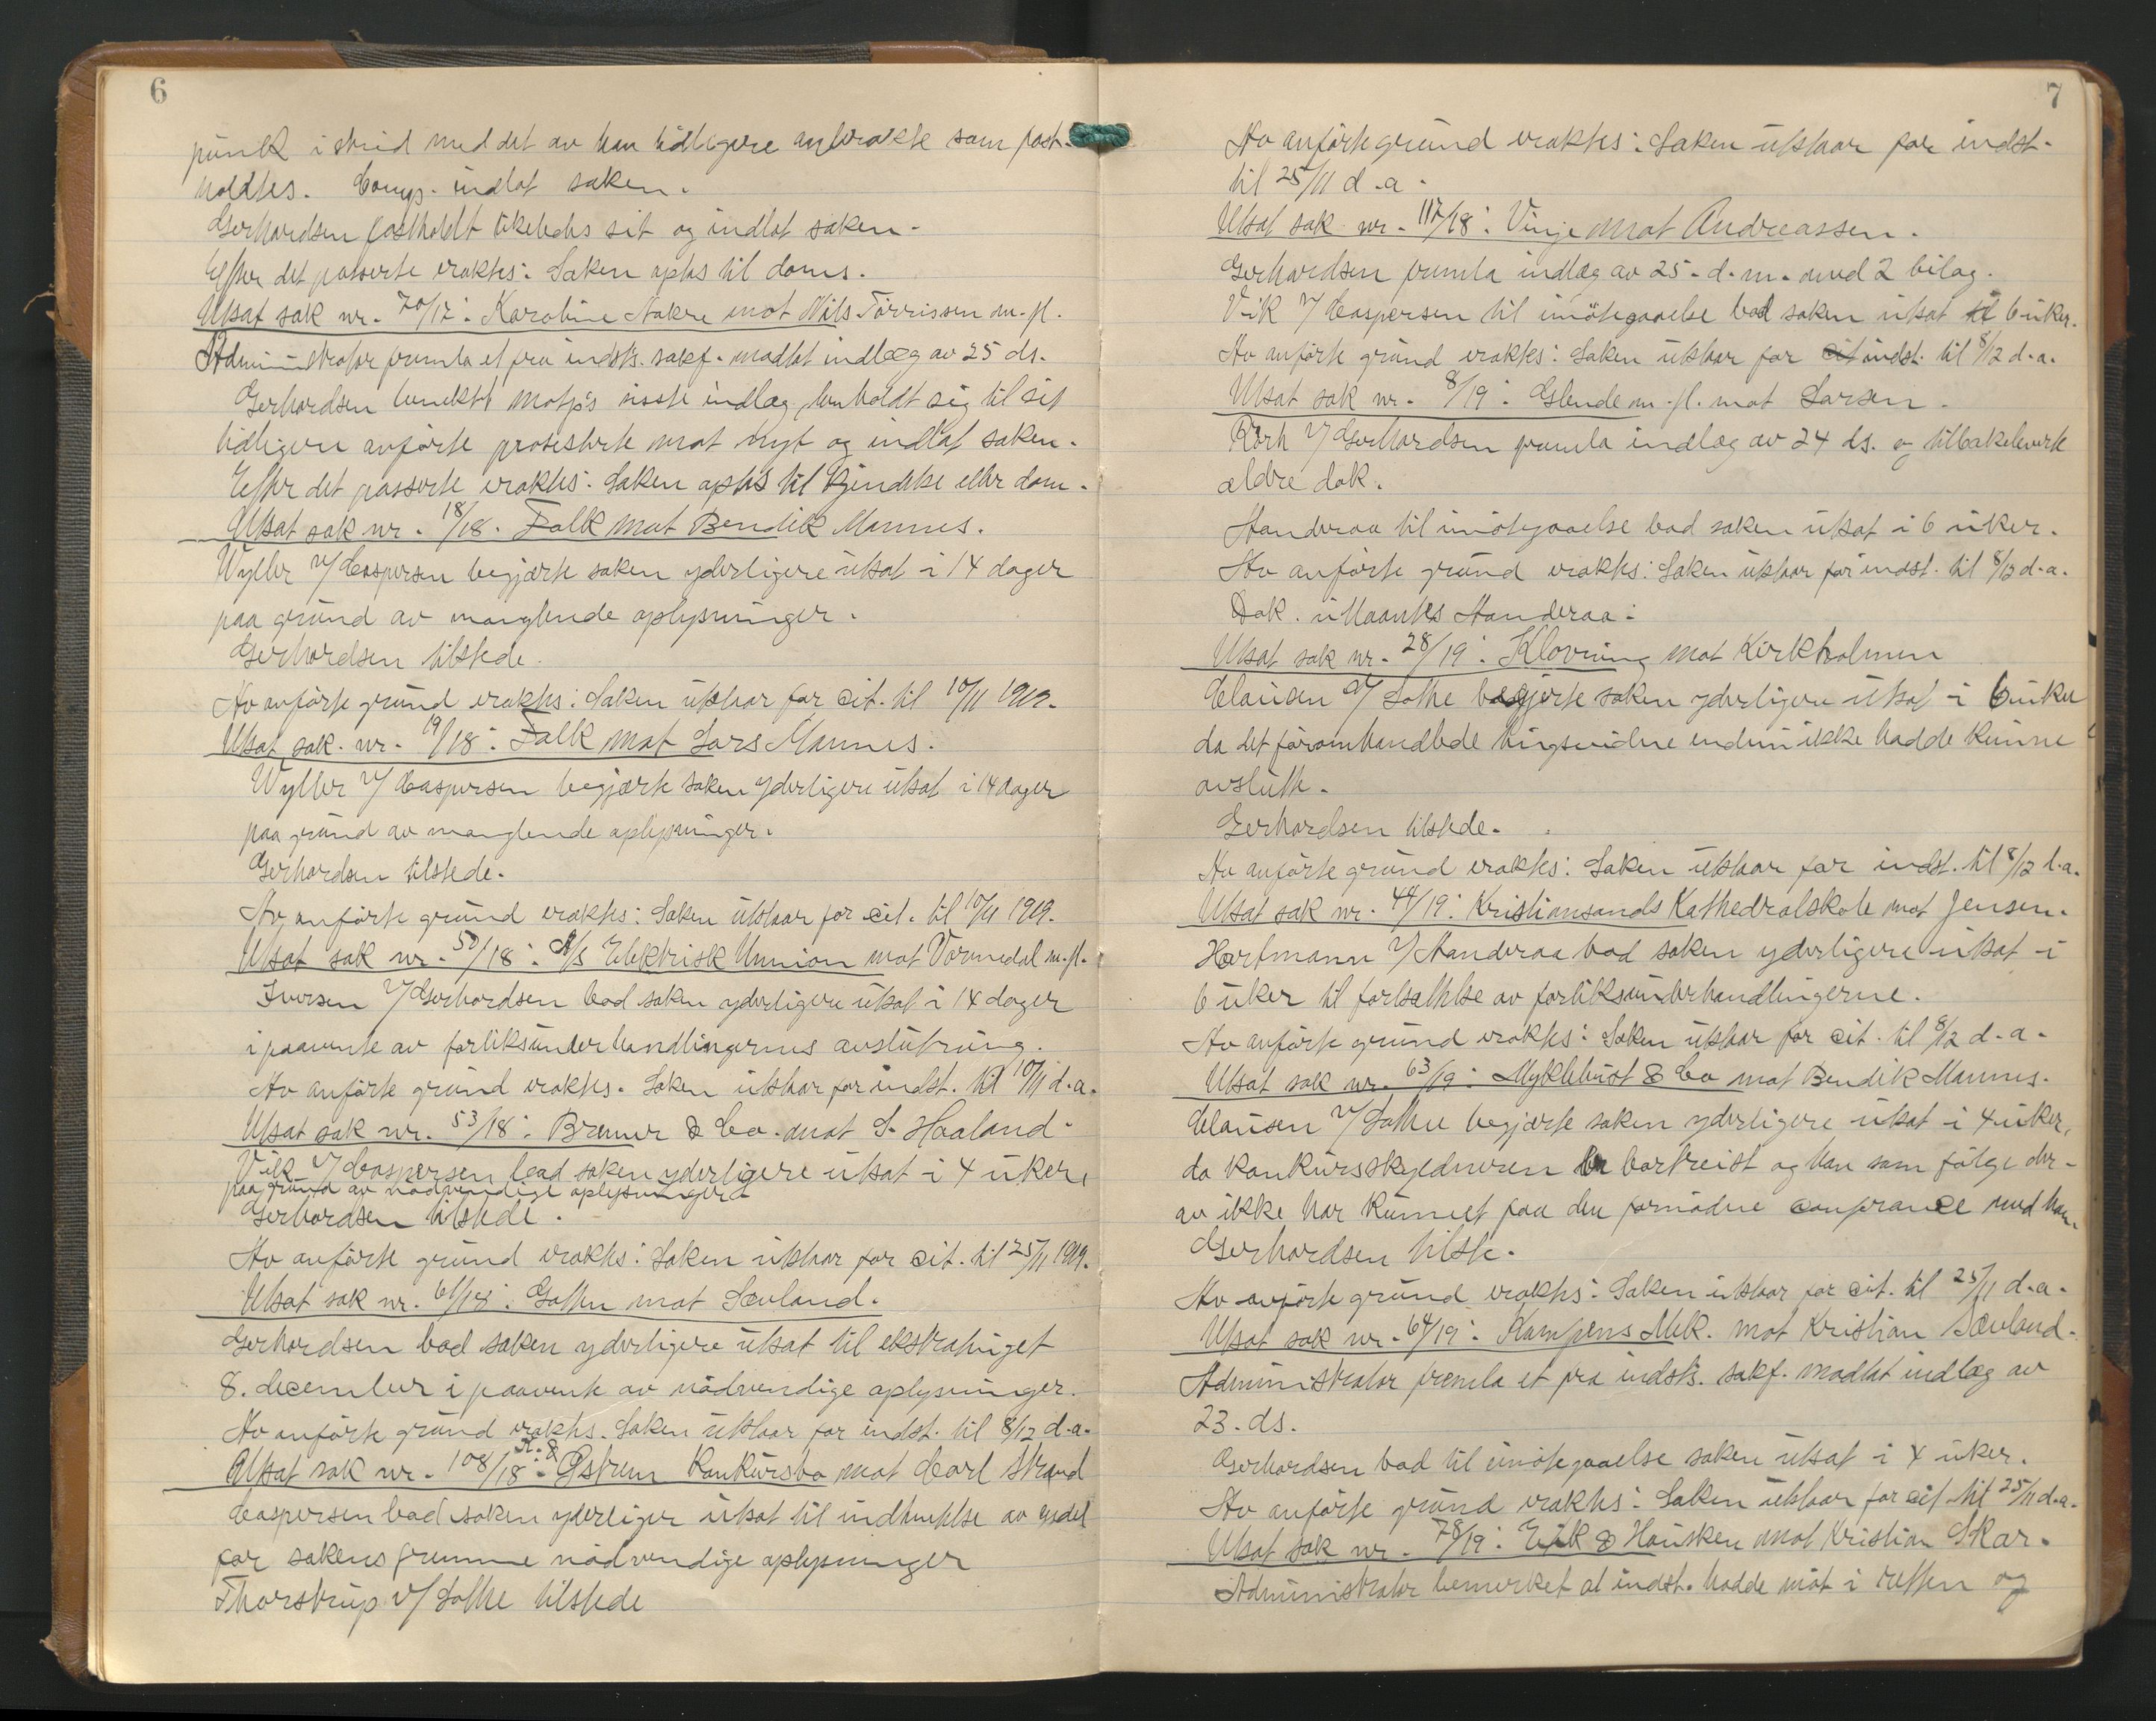 6
punkt i strid med det av ham tidligere anførte som fast-
holdtes. Comp. indlot saken.
Gerhardsen fastholdt likeledes sit og indlot saken.
Efter det passerte eraktes: Saken optas til doms.
Utsat sak nr. 70/17: Karoline Aakre mot Nils Tørrissen m.fl.
Administrator fremla et fra indsts. sakf. modtat indlæg av 25 ds.
Gerhardsen motp's siste indlæg, henholdt sig til sit
tidligere anførte protesterte mot nyt og indlot saken.
Efter det passerte eraktes: Saken optas til kjendelse eller dom.
Utsat sak nr. 18/18. Falk mot Bendik Mannes.
Wyller v/ Caspersen begjærte saken yderligere utsat i 14 dager
paa grund av manglende oplysninger.
Gerhardsen tilstede.
Av anførte grund eraktes: Saken utstaar for cit. til 10/11 1919.
Utsat sak. nr. 19/18: Falk mot Lars Mannes.
Wyller v/ Caspersen begjærte saken yderligere utsat i 14 dager
paa grund av manglende oplysninger.
Gerhardsen tilstede.
Av anførte grund eraktes: Saken utstaar for cit. til 10/11 1919.
Utsat sak nr. 50/18: A/s Elektrisk Union mot Vormedal m.fl.
Iversen v/ Gerhardsen bad saken yderligere utsat i 14 dager
i paavente av forliksunderhandlingernes avslutning.
Av anførte grund eraktes. Saken utstaar for indst. til 10/11 d.a.
Utsat sak nr. 53/18: Bremer & Co. mot S. Haaland.
Vik v/ Caspersen bad saken yderligere utsat i 4 uker,
paa grund av nødvendige oplysninger
Gerhardsen tilstede.
Av anførte grund eraktes: Saken utstaar for cit. til 25/11 1919.
Utsat sak nr. 61/18: Sothe mot Sævland.
Gerhardsen bad saken yderligere utsat til ekstratinget
8. december i paavente av nødvendige oplysninger.
Av anførte grund eraktes. Saken utstaar for indst. til 8/12 d.a.
Utsat sak nr. 108/18: Østrem konkursbo mot Carl Strand
Caspersen bad saken yderligere utsat til indhentelse av endel
for sakens fremme nødvendige oplysninger
Thorstrup v/ Sothe tilstede
7
Av anførte grund eraktes: Saken utstaar for indst.
til 25/11 d.a.
Utsat sak nr. 117/18: Vinje mot Andreassen.
Gerhardsen fremla indlæg av 25. d.m. med 2 bilag.
Vik v/ Caspersen til imøtegaaelse bad saken utsat til 6 uker.
Av anførte grund eraktes: Saken utstaar for cit indst. til 8/12 d.a.
Utsat sak nr. 8/19: Eglende m.fl. mot Larsen.
Rörh v/ Gerhardsen fremla indlæg av 24 ds. og tilbakeleverte
ældre dok.
Handeraa til imøtegaaelse bad saken utsat i 6 uker.
Av anførte grund eraktes: Saken utstaar for indst. til 8/12 d.a.
Dok. utlaantes Handeraa:
Utsat sak nr. 28/19: Klovning mot Kirkholmen
Clausen v/ Sothe begjærte saken yderligere utsat i 6 uker
da det foromhandlede tingsvidne endnu ikke hadde kunne
avslutte.
Gerhardsen tilstede.
Av anførte grund eraktes: Saken utstaar for indst. til 8/12 d.a.
Utsat sak nr. 44/19: Kristiansands Kathedralskole mot Jensen.
Hartmann v/ Handeraa bad saken yderligere utsat i
6 uker til fortsættelse av forliksunderhandlingerne.
Av anførte grund eraktes: Saken utstaar for cit. til 8/12 d.a.
Utsat sak nr. 63/19: Myklebust & Co mot Bendik Mannes.
Clausen v/ Sothe begjærte saken yderligere utsat i 4 uker,
da konkursskyldneren er bortreist og han som følge der-
av ikke har kunnet faa den fornødne conferance med ham.
Gerhardsen tilste.
Av anførte grund eraktes: Saken utstaar for cit. til 25/11 d.a.
Utsat sak nr. 64/19: Kampens Mek. mot Kristian Sævland.
Administrator fremla et fra indsts. sakf. modtat indlæg av
23. ds.
Gerhardsen bad til imøtegaaelse saken utsat i 4 uker.
Av anførte grund eraktes: Saken utstaar for cit. til 25/11 d.a.
Utsat sak nr. 78/19: Eik & Hausken mot Kristian Skar.
Administrator bemerket at indst. hadde møt i retten og